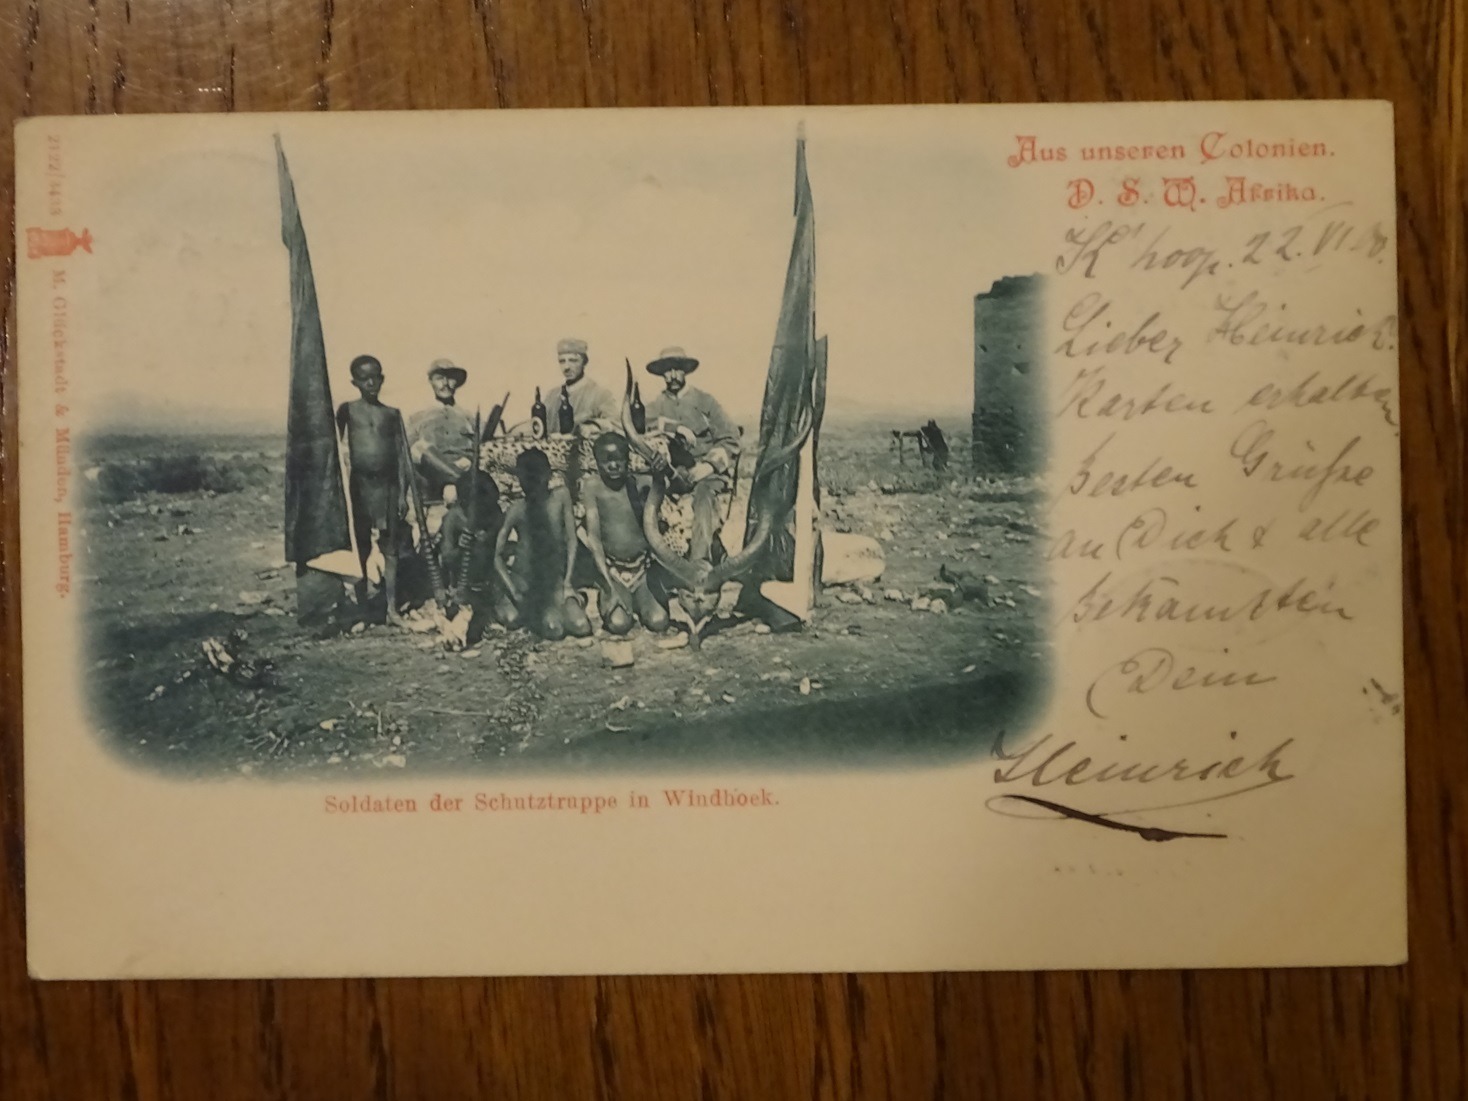 Aus unseren Colonien.
D. S. W. Afrika.
K'hoop. 22. VI. 00.
Lieber Heinrich.
Karten erhalten
besten Grüße
an Dich & alle
Bekannten
Dein
Heinrich
Soldaten der Schutztruppe in Windhoek.
M. Glückstadt & Münden, Hamburg.